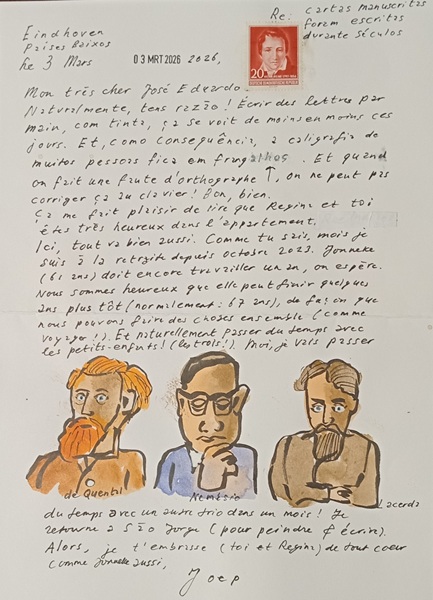 Re: cartas manuscritas
foram escritas
durante séculos
Eindhoven
Países Baixos
le 3 Mars 03 MRT 2026 2026,
20
Mon très cher José Eduardo
Naturalmente, tens razão! Écrir des lettres par
main, com tinta, ça se voit de moins en moins ces
jours. Et, como consequência, a caligrafia de
muitos pessoas fica em frangalhos. Et quand
on fait une faute d'orthographe ↑, on ne peut pas
corriger ça au clavier! Bon, bien.
Ça me fait plaisir de lire que Regina et toi
êtes très heureux dans l'appartement.
Ici, tout va bien aussi. Comme tu sais, mois je
suis à la retraite depuis octobre 2023. Janneke
(61 ans) doit encore travailler un an, on espère.
Nous sommes heureux que elle peut finir quelques
ans plus tôt (normalement: 67 ans), de façon que
nous pouvons faire des choses ensemble (comme
voyager!). Et naturellement passer du temps avec
les petits-enfants! (les trois!). Moi, je vais passer
de Quental
Nemésio
Lacerda
du temps avec un autre trio dans un mois! Je
retourne a São Jorge (pour peindre & écrire).
Alors, je t'embrasse (toi et Regina) de tout coeur
comme Janneke aussi,
Joep